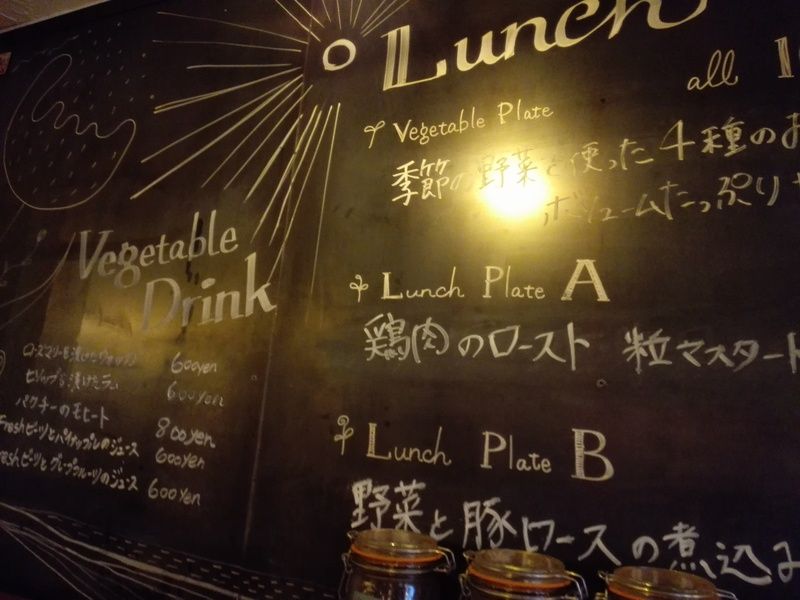 Lunch
all
Vegetable Plate
季節の野菜を使った4種のお
ボリュームたっぷり
Lunch Plate A
鶏肉のロースト 粒マスタート
Lunch Plate B
野菜と豚ロースの煮込み
Vegetable
Drink
600yen
600yen
パクチーのモヒート 800yen
Freshビーツとパイナップルのジュース 600yen
Freshビーツとグレープフルーツのジュース 600yen